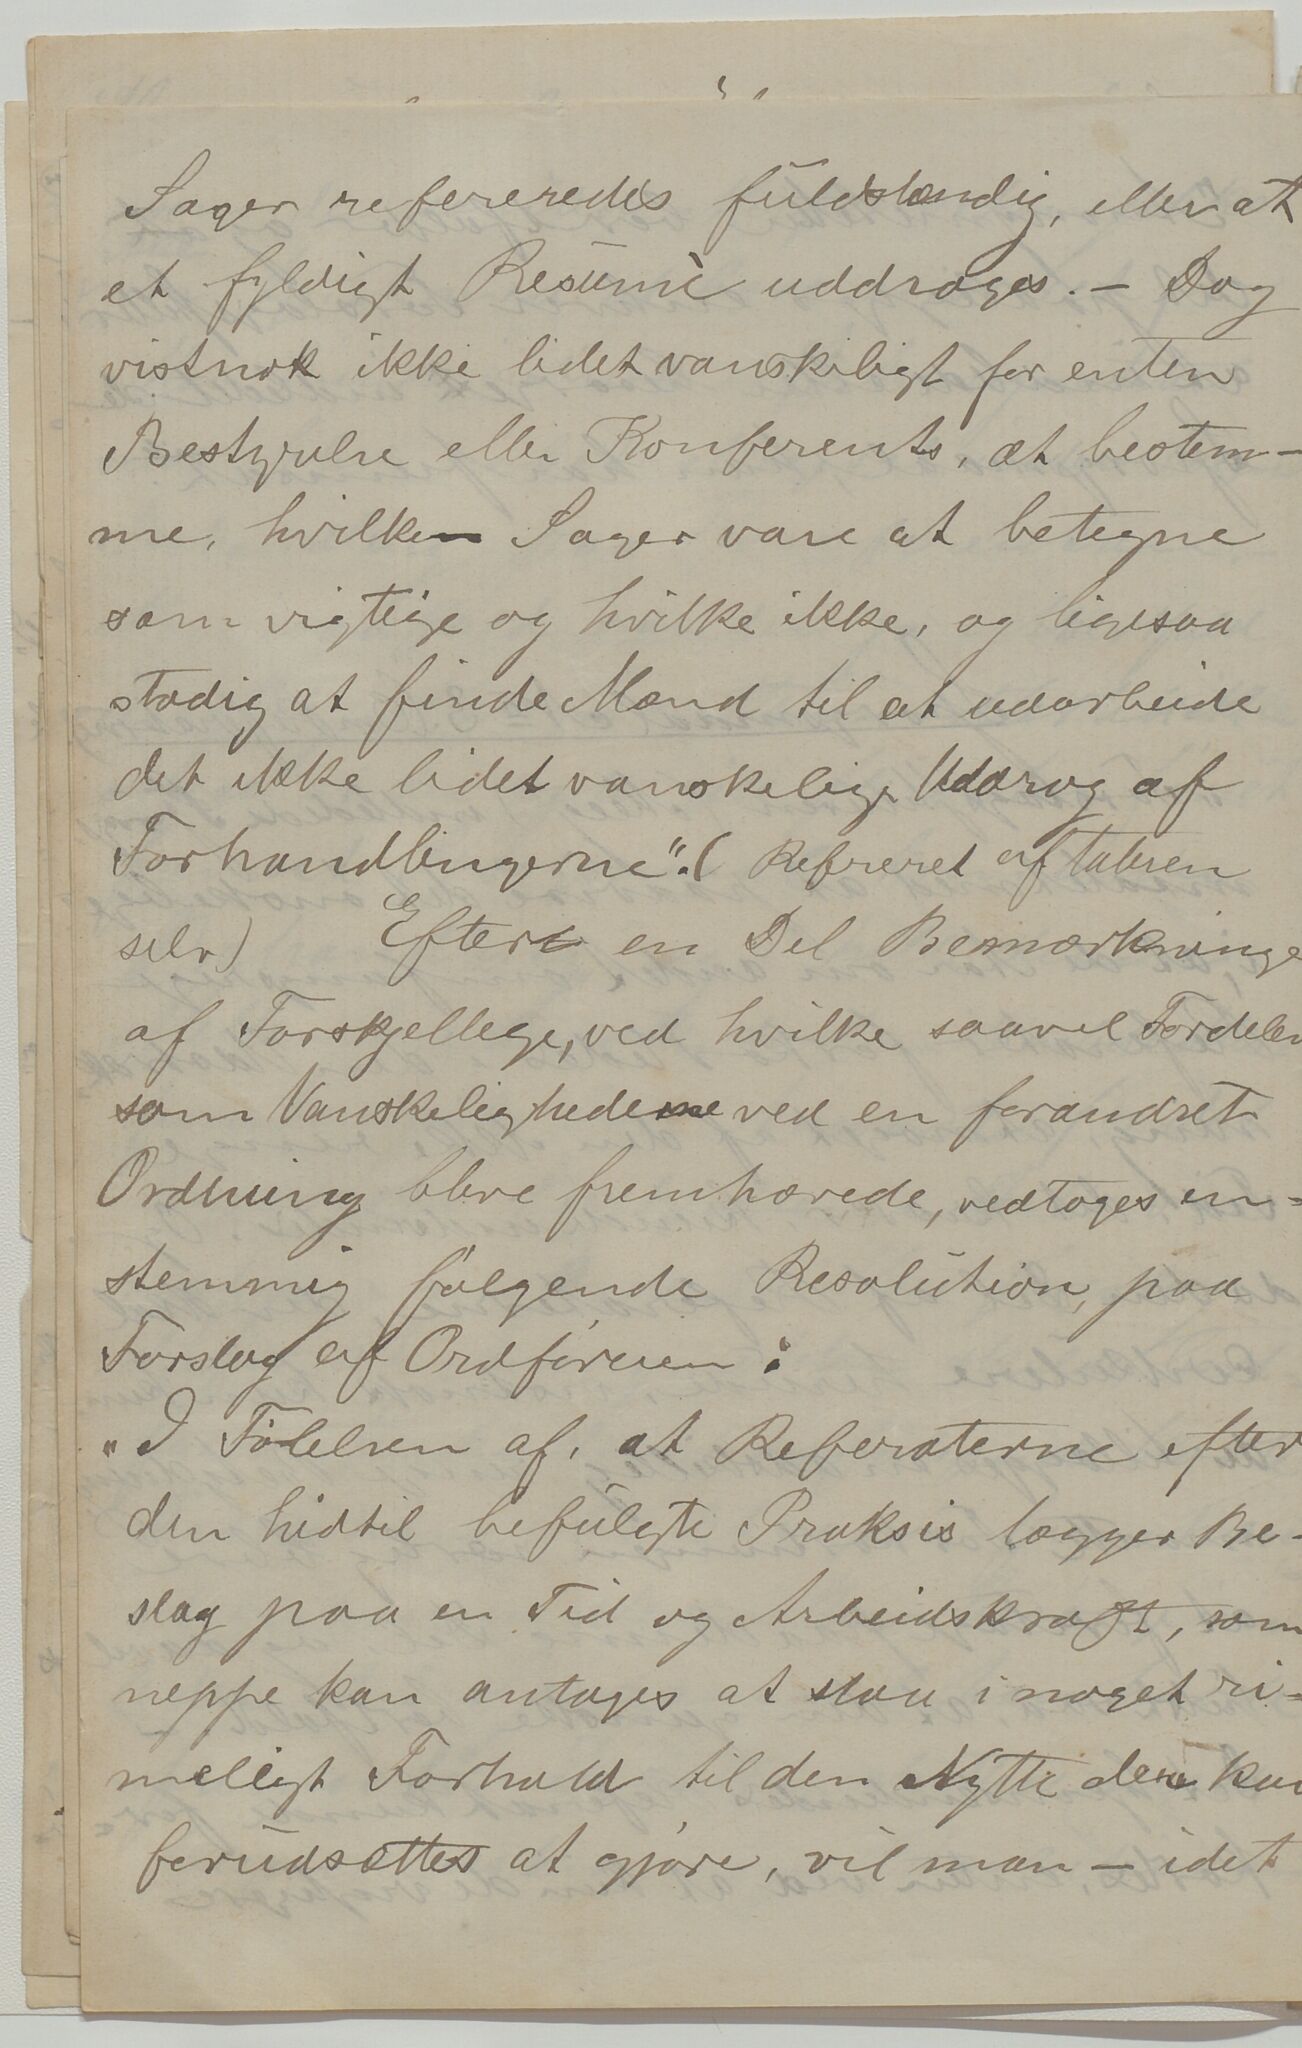 Sager refereredes fuldstændig, eller at
et fyldigt Resumè uddroges. – Dog
vistnok ikke lidet vanskeligt for enten
Bestyrelse eller Konferents, at bestem-
me, hvilke Sager vare at betegne
som vigtige og hvilke ikke, og ligesaa
stadig at finde Mænd til at udarbeide
det ikke lidet vanskelige Uddrag af
Forhandlingerne". (Refreret af taleren
selv) Efter en Del Bemærkninge
af Forskjellege, ved hvilke saavel Fordelen
som Vanskelighederne ved en forandret
Ordning bleve fremhævede, vedtoges en-
stemmig følgende Resolution, paa
Forslag af Ordføreren:
"I Følelsen af, at Referaterne efter
den hidtil befulgte Praksis lægger Be-
slag paa en Tid og Arbeidskraft, som
neppe kan antages at staa i noget ri-
meligt Forhold til den Nytte de kan
forudsættes at gjøre, vil man – idet